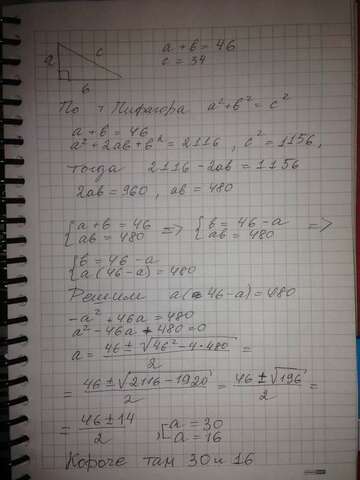 a c a + b = 46
b c = 34
По т Пифагора a² + b² = c²
a + b = 46
a² + 2ab + b² = 2116 , c² = 1156,
тогда 2116 - 2ab = 1156
2ab = 960 , ab = 480
{a + b = 46 => {b = 46 - a =>
{ab = 480 {ab = 480
{b = 46 - a
{a(46 - a) = 480
Решим a(46 - a) = 480
-a² + 46a = 480
a² - 46a + 480 = 0
a = (46 ± √(46² - 4·480))/2 =
= (46 ± √(2116 - 1920))/2 = (46 ± √196)/2 =
= (46 ± 14)/2 , [a = 30
[a = 16
Короче там 30 и 16